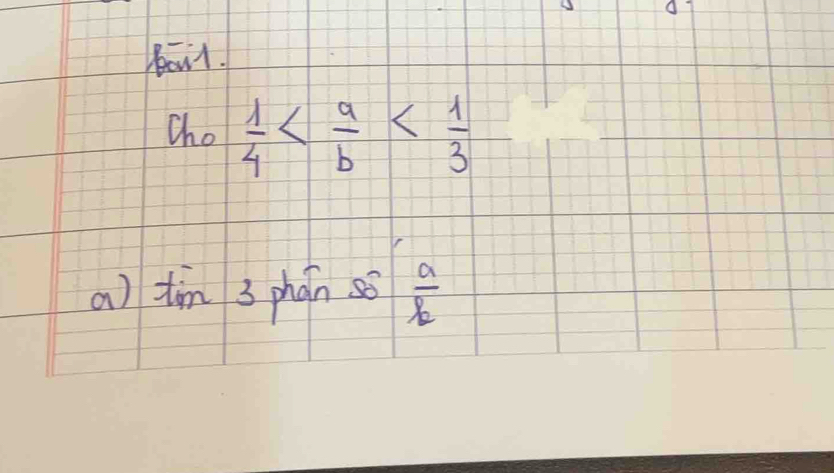 Bài 1.
Cho 1/4 < a/b < 1/3
a) tìm 3 phân số a/b